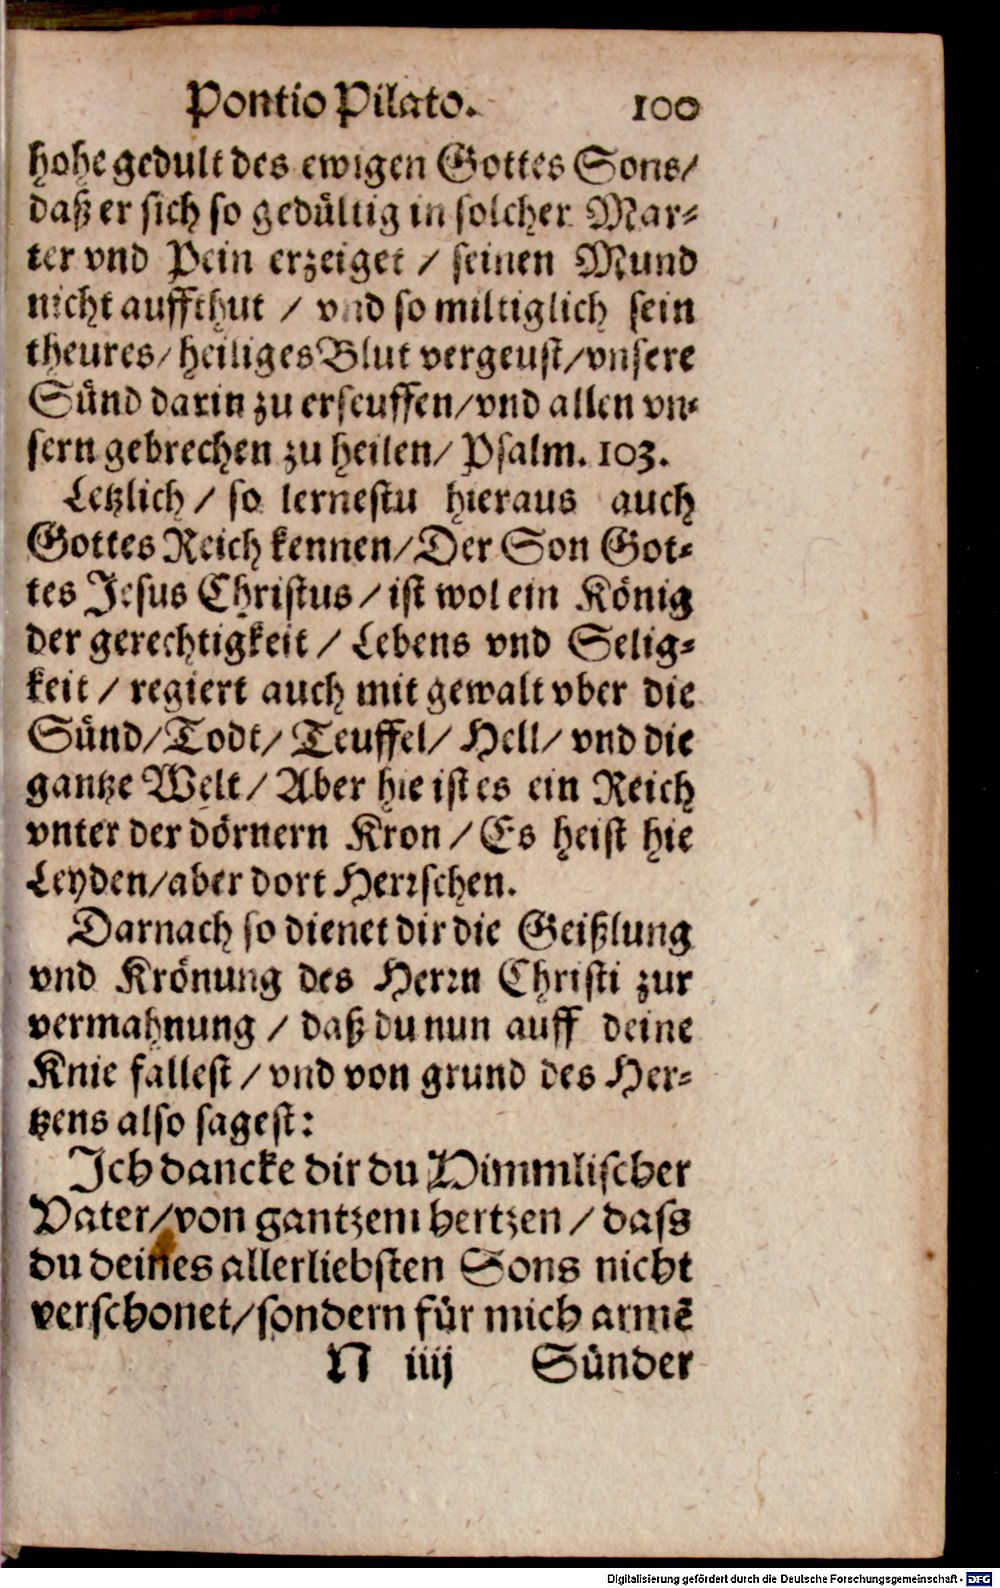 Pontio Pilato. 100
hohe gedult des ewigen Gottes Sons/
daß er sich so gedültig in solcher Mar-
ter vnd Pein erzeiget / seinen Mund
nicht auffthut / vnd so miltiglich sein
theures/ heiliges Blut vergeust/vnsere
Sünd darin zu erseuffen/vnd allen vn-
sern gebrechen zu heilen/ Psalm. 103.
Letzlich / so lernestu hieraus auch
Gottes Reich kennen/Der Son Got-
tes Jesus Christus / ist wol ein König
der gerechtigkeit / Lebens vnd Selig-
keit / regiert auch mit gewalt vber die
Sünd/Todt/ Teuffel/ Hell/ vnd die
gantze Welt / Aber hie ist es ein Reich
vnter der dörnern Kron / Es heist hie
Leyden/aber dort Herrschen.
Darnach so dienet dir die Geißlung
vnd Krönung des Herrn Christi zur
vermahnung / daß du nun auff deine
Knie fallest / vnd von grund des Her-
tzens also sagest:
Ich dancke dir du Himmlischer
Vater/von gantzem hertzen / dass
du deines allerliebsten Sons nicht
verschonet/sondern für mich armẽ
N iiij Sünder
Digitalisierung gefördert durch die Deutsche Forschungsgemeinschaft - DFG